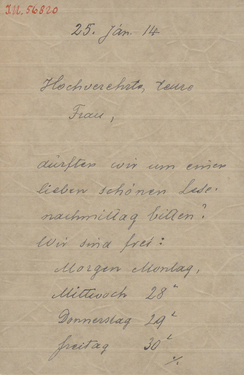 I.N. 56820
25. Jän. 14
Hochverehrte, teure
Frau,
dürften wir um einen
lieben schönen Lese-
nachmittag bitten?
Wir sind frei:
Morgen Montag,
Mittwoch 28ᵗ
Donnerstag 29ᵗ
Freitag 30ᵗ